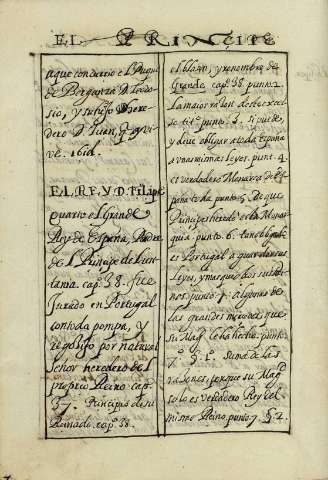 EL PRINCIPE
que con derecho el Duque
de Berganza D. Teodo-
sio, y su hijo y here-
dero D. Juan, q oy vi
ve. ibid.
EL REY D. Filipe
Quarto el Grande
Rey de España, Padre
de l Principe de Lusi-
tania. cap. 38. fue
Jurado en Portugal
con toda pompa, y
regosijo por natural
Señor heredero del
proprio Reino cap.
37. Principio de su
Reinado. cap. 38.
el blason, y renombre de
Grande. cap. 38. punto. 2.
La maior razon deste excel-
so titº punto. 3. si puede,
y deve obligar a toda España
a unas mismas leyes. punt. 4.
es verdadero Monarca de Es
paña toda punto. 5. De que
Principes heredo esta Monar
quia. punto. 6. tan obligado
es Portugal a guardar sus
Leyes, y mas que los sus otros Rei
nos. punto. 7. algunas de
las grandes mercedes, que
su Magd. le ha hecho. punto.
7. § 1. suma de las
razones, porque su Magd.
solo es verdadero Rey del
mismo Reino. punto. 7. § 2.